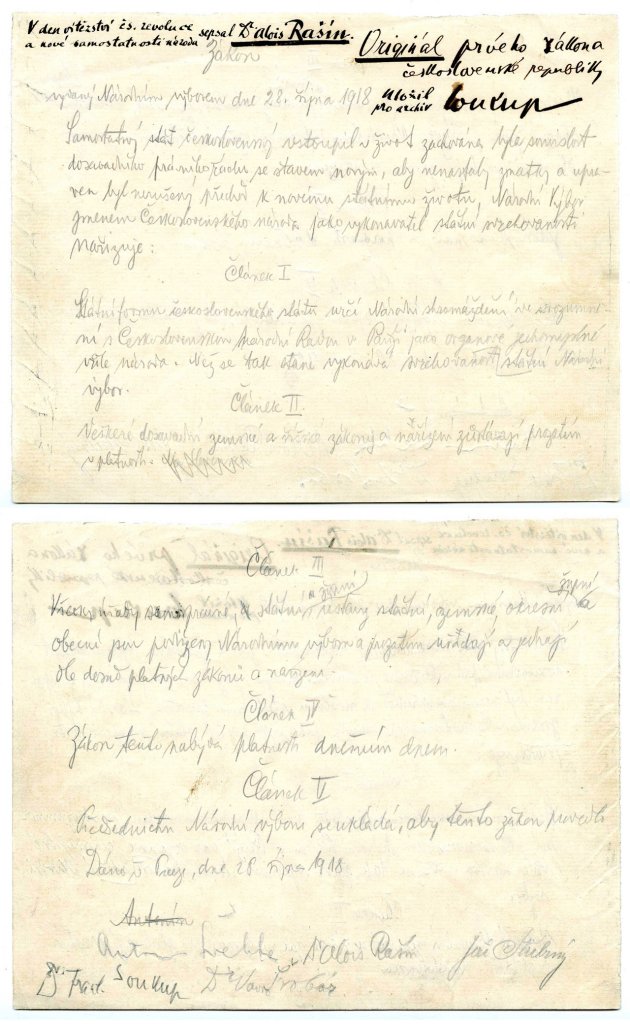 V den vítězství čs. revoluce
a nové samostatnosti národa
sepsal Dr Alois Rašín.
Originál prvého zákona
československé republiky
uložil
pro archiv Soukup
Zákon
vydaný Národním výborem dne 28. října 1918
Samostatný stát československý vstoupil v život zachována byla souvislost
dosavadního právního řádu se stavem novým, aby nenastaly zmatky a upra-
ven byl nerušený přechod k novému státnímu životu, Národní Výbor
jménem Československého národa jako vykonavatel státní svrchovanosti
nařizuje:
Článek I
Státní formu československého státu určí Národní shromáždění ve srozumě-
ní s Československou Národní Radou v Paříži jako orgánové jednomyslné
vůle národa. Než se tak stane vykonává svrchovanost státní Národní
výbor.
Článek II.
Veškeré dosavadní zemské a říšské zákony a nařízení zůstávají prozatím
v platnosti.
Článek III
státní ústavy státní, zemské, okresní žúpní a
obecní jsou podřízeny Národnímu výboru a prozatím úřadují a jednají
dle dosud platných zákonů a nařízení.
Článek IV
Zákon tento nabývá platnosti dnešním dnem.
Článek V
Předsednictvu Národní výboru se ukládá, aby tento zákon provedlo
Dáno v Praze, dne 28 října 1918
Antonín
Antonín Švehla Dr Alois Rašín Jiří Stříbrný
Dr. Frant. Soukup Dr Vavro Šrobár